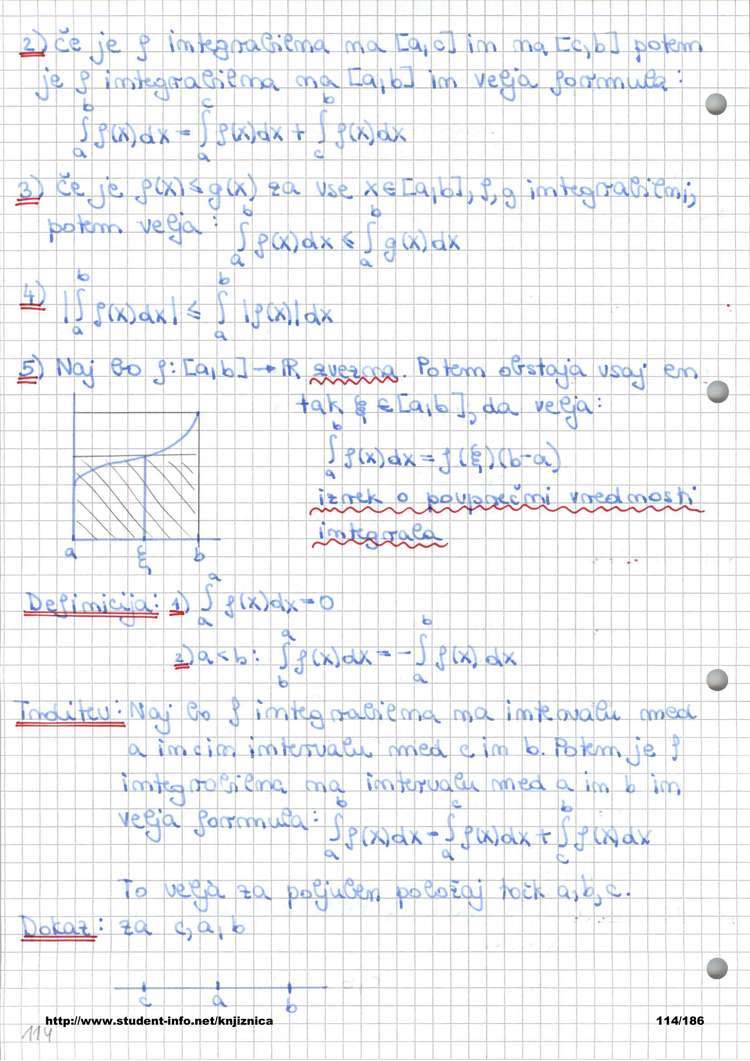 2) Če je f integrabilna na [a,c] in na [c,b] potem
je f integrabilna na [a,b] in velja formula:
∫_a^b f(x)dx = ∫_a^c f(x)dx + ∫_c^b f(x)dx
3) Če je f(x) ≤ g(x) za vse x∈[a,b], f,g integrabilni,
potem velja: ∫_a^b f(x)dx ≤ ∫_a^b g(x)dx
4) |∫_a^b f(x)dx| ≤ ∫_a^b |f(x)|dx
5) Naj bo f: [a,b] → ℝ zvezna. Potem obstaja vsaj en
tak ξ ∈ [a,b], da velja:
∫_a^b f(x)dx = f(ξ)(b-a)
izrek o povprečni vrednosti
integrala
a ξ b
Definicija: 1) ∫_a^a f(x)dx = 0
2) a<b: ∫_b^a f(x)dx = -∫_a^b f(x)dx
Trditev: Naj bo f integrabilna na intervalu med
a in c in intervalu med c in b. Potem je f
integrabilna na intervalu med a in b in
velja formula: ∫_a^b f(x)dx = ∫_a^c f(x)dx + ∫_c^b f(x)dx
To velja za poljuben položaj točk a,b,c.
Dokaz: za c,a,b
c a b
http://www.student-info.net/knjiznica 114/186
114